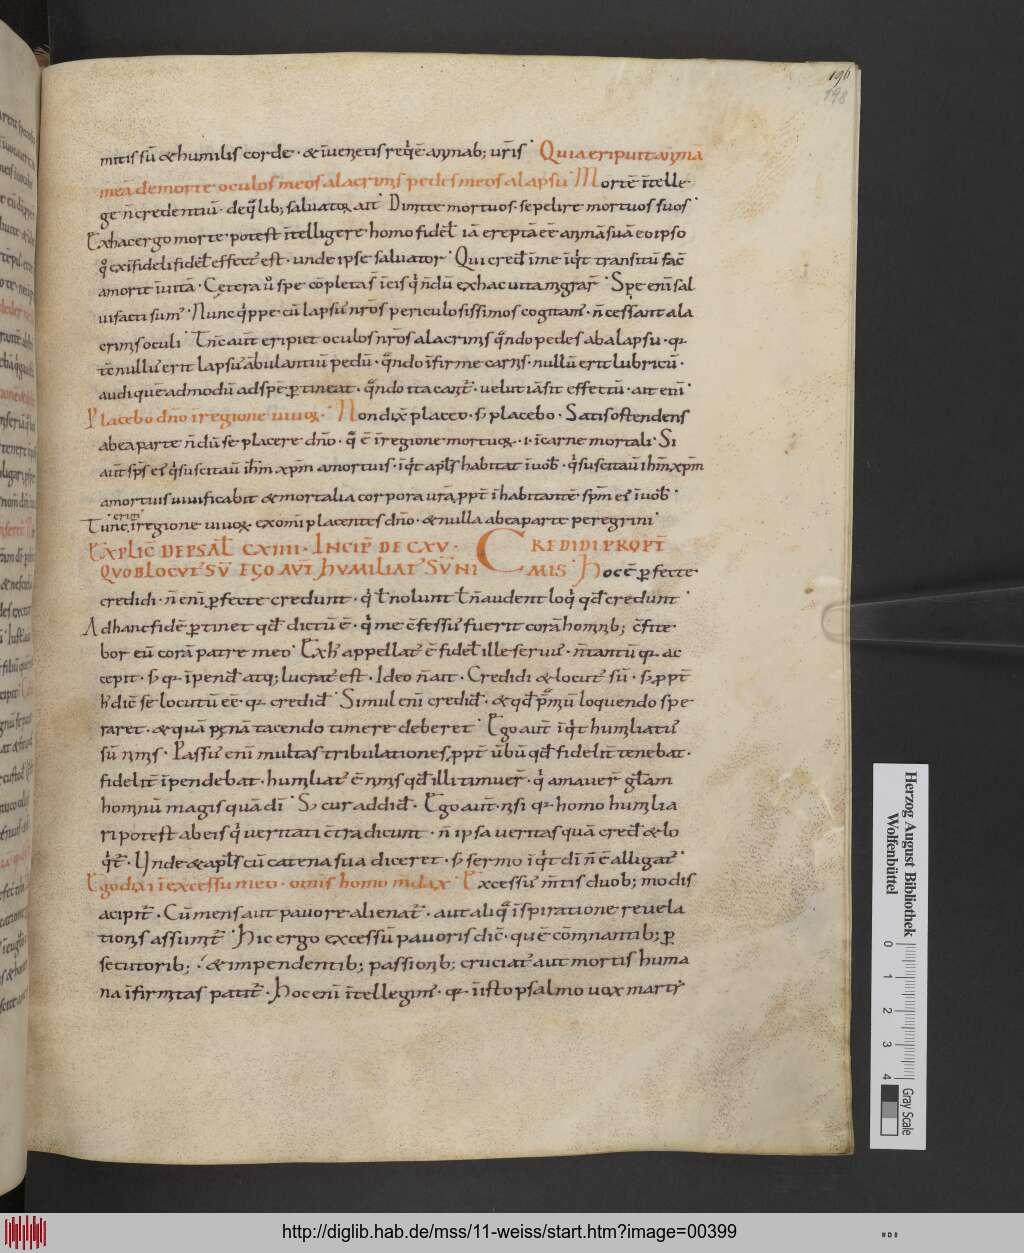 196
198
mitis sū & humilis corde · & īueнetis reqͥē aнmab; ur̄is · Quia eripuit aнmā
meā de morte oculos meos a lacrimis pedes meos a lapsu · Mortē ītelle
ge n̄ credentiū · de qͥlib; saluator ait · Dimitte mortuos · sepelire mortuos suos ·
Ex hac ergo morte · potest ītelligere homo fidel̄ iā ereptā eē aнmā suā eo ipso
qͦ ex īfideli fidel̄ effect᷒ est · unde ipse saluator · Qui cred̄ ī me īqͥt transitū fac̄
a morte ī uitā · Cetera u͛o spe cōpletas ī eis qͥ n̄dū ex hac uita migrar̄ · Spe enī sal
ui facti sum᷒ · Nunc qͥppe cū lapsu᷒ nr̄os periculosissimos cogitam᷒ · n̄ cessant a la
crimis oculi · Tn̄c aut̄ eripiet oculos nr̄os a lacrimis qͣndo pedes ab a lapsu · qꝛ
tē nullu᷒ erit lapsu᷒ ābulantiū pedū · qͣndo īfirme carnis · nullū erit lubricū ·
audi quēadmodū ad spē ꝑtineat · qͣndo ita cant̄ · uelut iā sit effectū · ait enī ·
Placebo dn̄o ī regione uiuoꝝ · Non dix̄ placeo · s̄ placebo · Satis ostendens
ab ea parte n̄dū se placere dn̄o · qͣ ē ī regione mortuoꝝ · ·i· ī carne mortali · Si
aut̄ sp̄s ei᷒ qͥ suscitauī ih̄m xp̄m a mortuis · īqͥt apl̄s habitat ī uob̄ · qͥ suscitauī ih̄m xp̄m
a mortuis uiuificabit & mortalia corpora ur̄a ꝓpt̄ īhabitantē sp̄m ei᷒ ī uob̄ ·
Tunc erim᷒ ī regione uiuoꝝ ex omī placentes dn̄o · & nulla ab ea parte peregrini ·
EXPLIC̄ DE PSAL̄ CXIIII · INCIP̄ DE CXV · CREDIDI PROPT̄
QUOD LOCUT᷒ SŪ EGO AUT̄ HUMILIAT᷒ SŪ NIMIS · Hoc ē ꝑfecte
credidi · n̄ enī ꝑfecte credunt · qͥ l̄ nolunt l̄ n̄ audent loqͥ qd̄ credunt ·
Ad hanc fidē ꝑtinet qd̄ dictū ē · qͥ me c̄fessu᷒ fuerit corā hominib; c̄fite
bor eū corā patre meo · Ex h͛ appellat᷒ ē fidel̄ ille seruu᷒ · n̄ tantū qꝛ ac
cepit · s̄ qꝛ īpend̄ atq; lucrat᷒ est · Ideo n̄ ait · Credidi & locut᷒ sū · s̄ ꝓpt̄
h͛ dic̄ se locutū eē · qꝛ credid̄ · Simul enī credid̄ · & qd̄ pͥmiū loquendo spe
raret · & quā penā tacendo timere deberet · Ego aut̄ īqͥt humiliatu᷒
sū nimis · Passu᷒ enī multas tribulationes ꝓpt̄ ūbū qd̄ fidelit̄ tenebat ·
fidelit̄ īpendebat · humiliat᷒ ē nimis qd̄ illi timuer̄ · qͥ amauer̄ gl̄am
hominū magis quā dī · S; cur addid̄ · Ego aut̄ · nisi qꝛ homo humilia
ri potest ab eis qͥ ueritati c̄tradicunt · n̄ ipsa ueritas quā cred̄ & lo
qͥt̄ · Unde & apl̄s cū catena sua diceret · s̄ sermo īqͥt dī n̄ ē alligat᷒ ·
Ego dixi ī excessu meo · omis homo mdax · Excessu᷒ m̄tis duob; modis
acipit̄ · Cū mens aut pauore alienat̄ · aut aliqͣ īspiratione reuela
tionis assumit̄ · Hic ergo excessū pauoris dic̄ · quē cōminantib; ꝑ
secutorib; · & impendentib; passionib; cruciat᷒ aut mortis huma
na īfirmitas patit̄ · Hoc enī ītellegim᷒ · qꝛ ī isto psalmo uox marty͛
Herzog August Bibliothek
Wolfenbüttel
0 1 2 3 4
Gray Scale
http://diglib.hab.de/mss/11-weiss/start.htm?image=00399